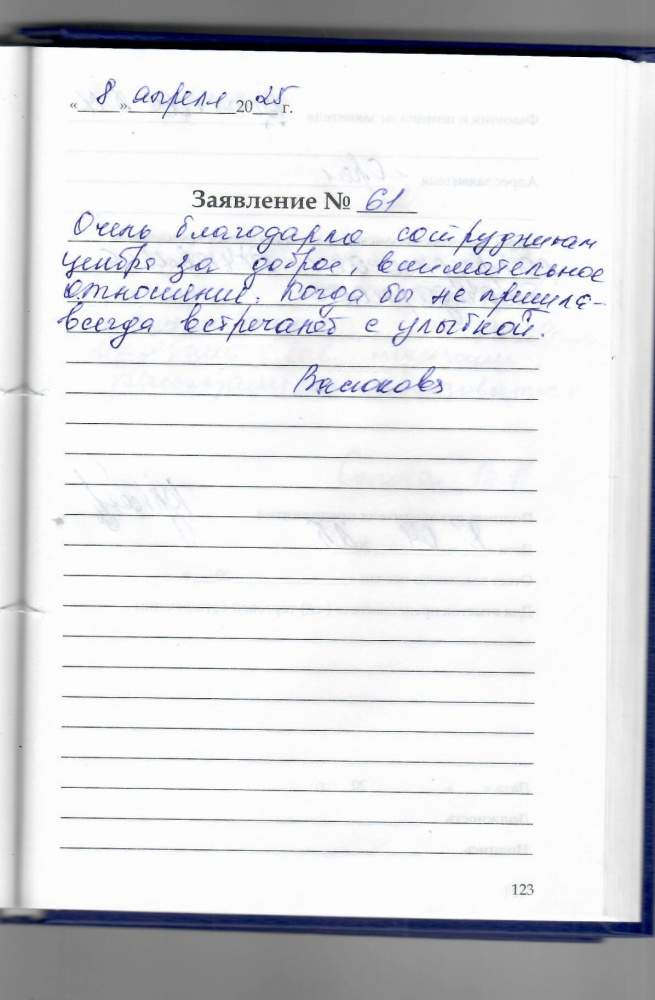 « 8 » апреля 2025 г.
Заявление № 61
Очень благодарна сотрудникам
центра за доброе, внимательное
отношение. Когда бы не пришла-
всегда встречают с улыбкой.
123